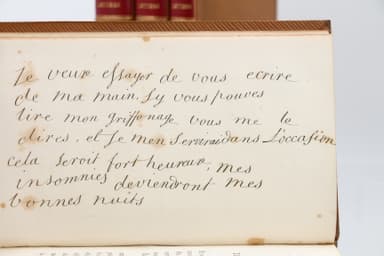 Je veux essayer de vous ecrire
de ma main. sy vous pouves
lire mon griffonage vous me le
dires, et Je men servirai dans L'occasion
cela seroit fort heureux, mes
insomnies deviendront mes
bonnes nuits